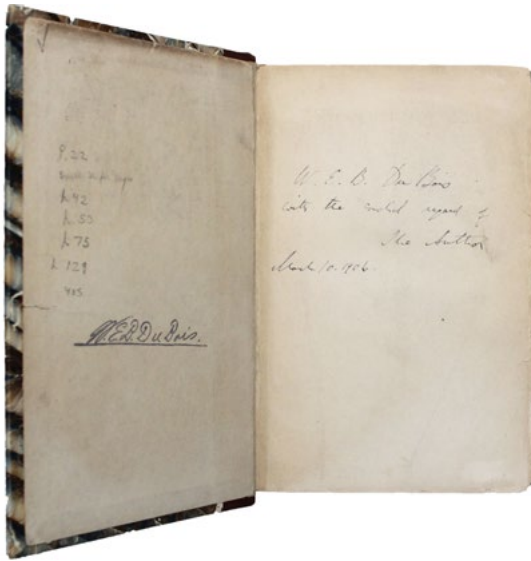 p. 22
p. 42
p. 53
p. 75
p. 129
W.E.B. DuBois.
W. E. B. Du Bois
with the cordial regard of
The Author
March 10. 1906.